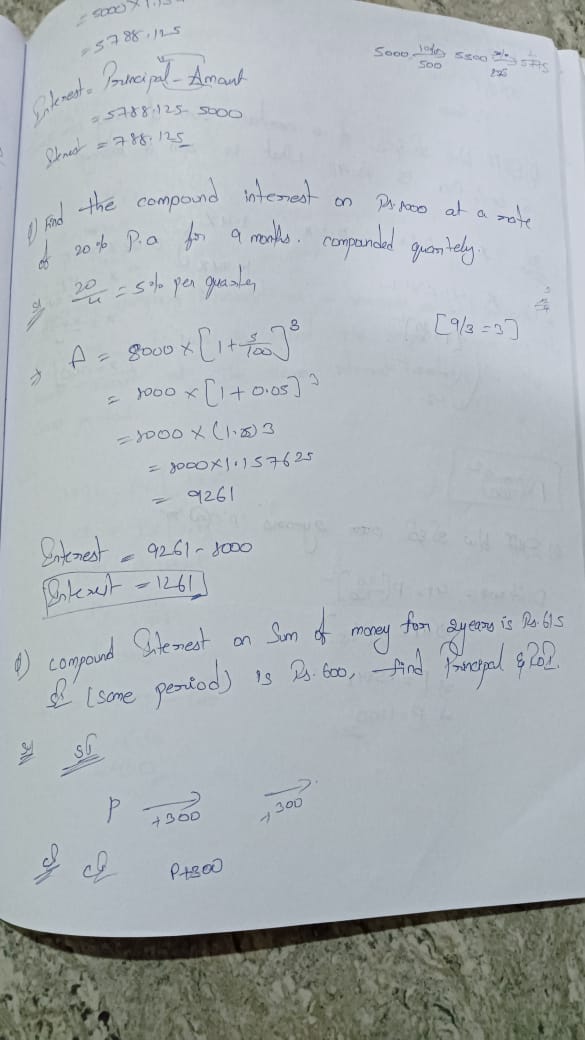 = 5000 × 1.15
= 5788.125
5000 10% 500 5500 5% 275 5775
Interest = Principal - Amount
= 5788.125 - 5000
Interest = 788.125
Q) Find the compound interest on Rs. 8000 at a rate
of 20% P.a for 9 months. compounded quartely.
20/4 = 5% per quarter
[9/3 = 3]
⇒ A = 8000 × [1 + 5/100]^3
= 8000 × [1 + 0.05]^3
= 8000 × (1.05)3
= 8000×1.157625
= 9261
Interest = 9261 - 8000
Interest = 1261
Q) compound Interest on Sum of money for 2years is Rs. 615
(same period) is Rs. 600, find Principal &
SI
P → +300 → +300
CI P+300